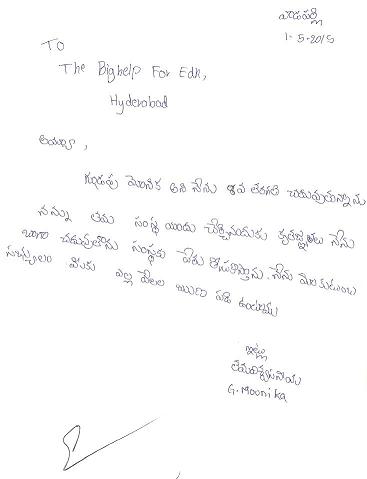 వాడపల్లి
1-5-2015
To
The Bighelp For Edn,
Hyderabad
అయ్యా,
గూడపు మౌనిక అని నేను 8వ తరగతి చదువుతున్నాను
నన్ను తమ సంస్థ యందు చేర్చినందుకు కృతజ్ఞతలు నేను
బాగా చదువుతాను సంస్థకు పేరు తీసుకొస్తాను. నేను మా కుటుంబ
సభ్యులం మీకు ఎల్ల వేలల ఋణ పడి ఉంటాము
ఇట్లు
తమవిశ్వసనీయ
G. Mounika